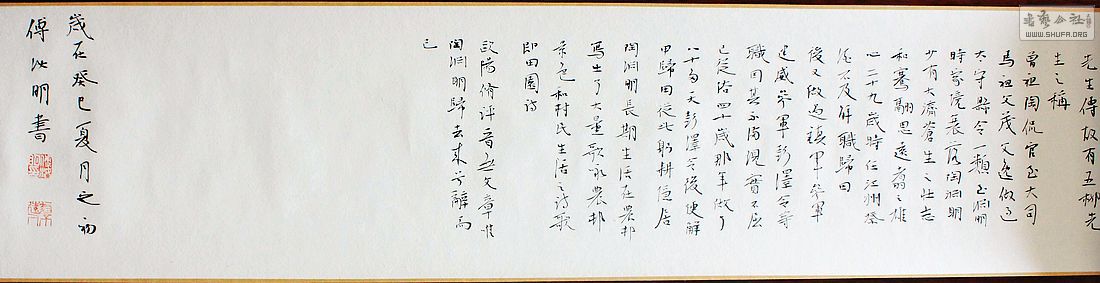 先生傳故有五柳先
生之稱
曾祖陶侃官至大司
馬祖父茂父逸做過
太守縣令一類至淵明
時家境衰落陶淵明
少有大濟蒼生之壯志
和騫翮思遠翥之雄
心二十九歲時任江州祭
酒不及解職歸田
後又做過鎮軍參軍
建威參軍彭澤令等
職因其不滿現實不屈
已從俗四十歲那年做了
八十多天彭澤令後便解
甲歸田從此躬耕隱居
陶淵明長期生活在農邨
寫出了大量歌咏農邨
景色和村民生活之詩歌
即田園詩
歐陽脩評晉无文章惟
陶淵明歸去來兮辭而
已
歲在癸巳夏月之初
傅 明書
書藝公社
WWW.SHUFA.ORG